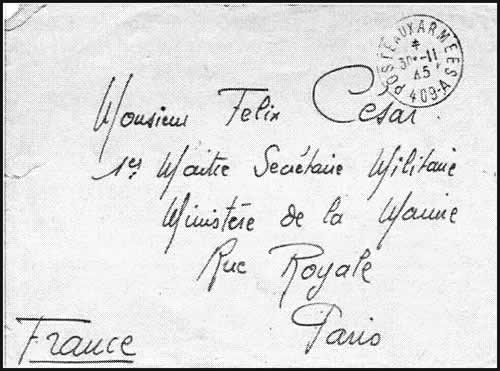 POSTE AUX ARMEES
30-11
45
409-A
Monsieur Felix César
1er Maitre Secrétaire Militaire
Ministère de la Marine
Rue Royale
Paris
France